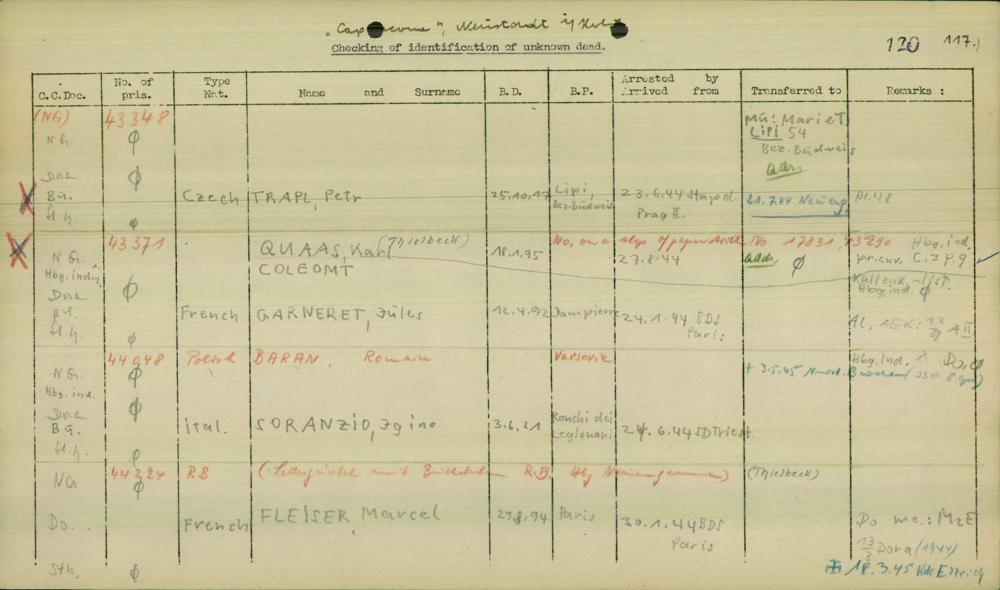 "Cap Arcona", Neustadt i/Hol.
Checking of identification of unknown dead.
120 117.)
C.C.Doc. No. of pris. Type Nat. Name and Surname B.D. B.P. Arrested by Arrived from Transferred to Remarks :
(NG) 43348 Mu: Marie T.
N G. ∅ Lipi 54
Bez. Budweis
Doc ∅ adr.
Bü. Czech TRAPL, Petr 25.10.17 Lipi, Bez.Budweis 23.6.44 Stapol. Prag II. 21.7.44 Neueng. Bl.48
fl.h. ∅
43371 QUAAS, Karl (Thielbeck) 18.1.95 No, on a slip of paper No. 17831, 73290 Hbg.ind.
N G. COLEOMT 27.8.44 adr. ∅ pr.env. C.3 p.9
Hbg.ind. ∅ -list.
Doc Hbg.ind. ∅
Bü. French GARNERET, Jules 12.4.92 Dampierre 24.1.44 BDS Paris Al, AEK: 12/9 A II
fl.h. ∅
44048 Polish BARAN, Roman Varsovie Hbg.ind. X Do.∅
N G. ∅ + 3.5.45 Neust.
Hbg.ind.
Doc ∅
Bü. ital. SORANZIO, Igino 3.6.21 Ronchi dei Legionari 24.6.44 SD Triest.
fl.h. ∅
NG 44224 RB ( mit R.B. Hbg Neuengamme) (Thielbeck)
∅
Do. French FLEISER Marcel 29.8.94 Paris 30.1.44 BDS Paris Do mc.: MzE
13/3 Dora (1944)
Stk. ∅ 18.3.45 Kdo Ellrich